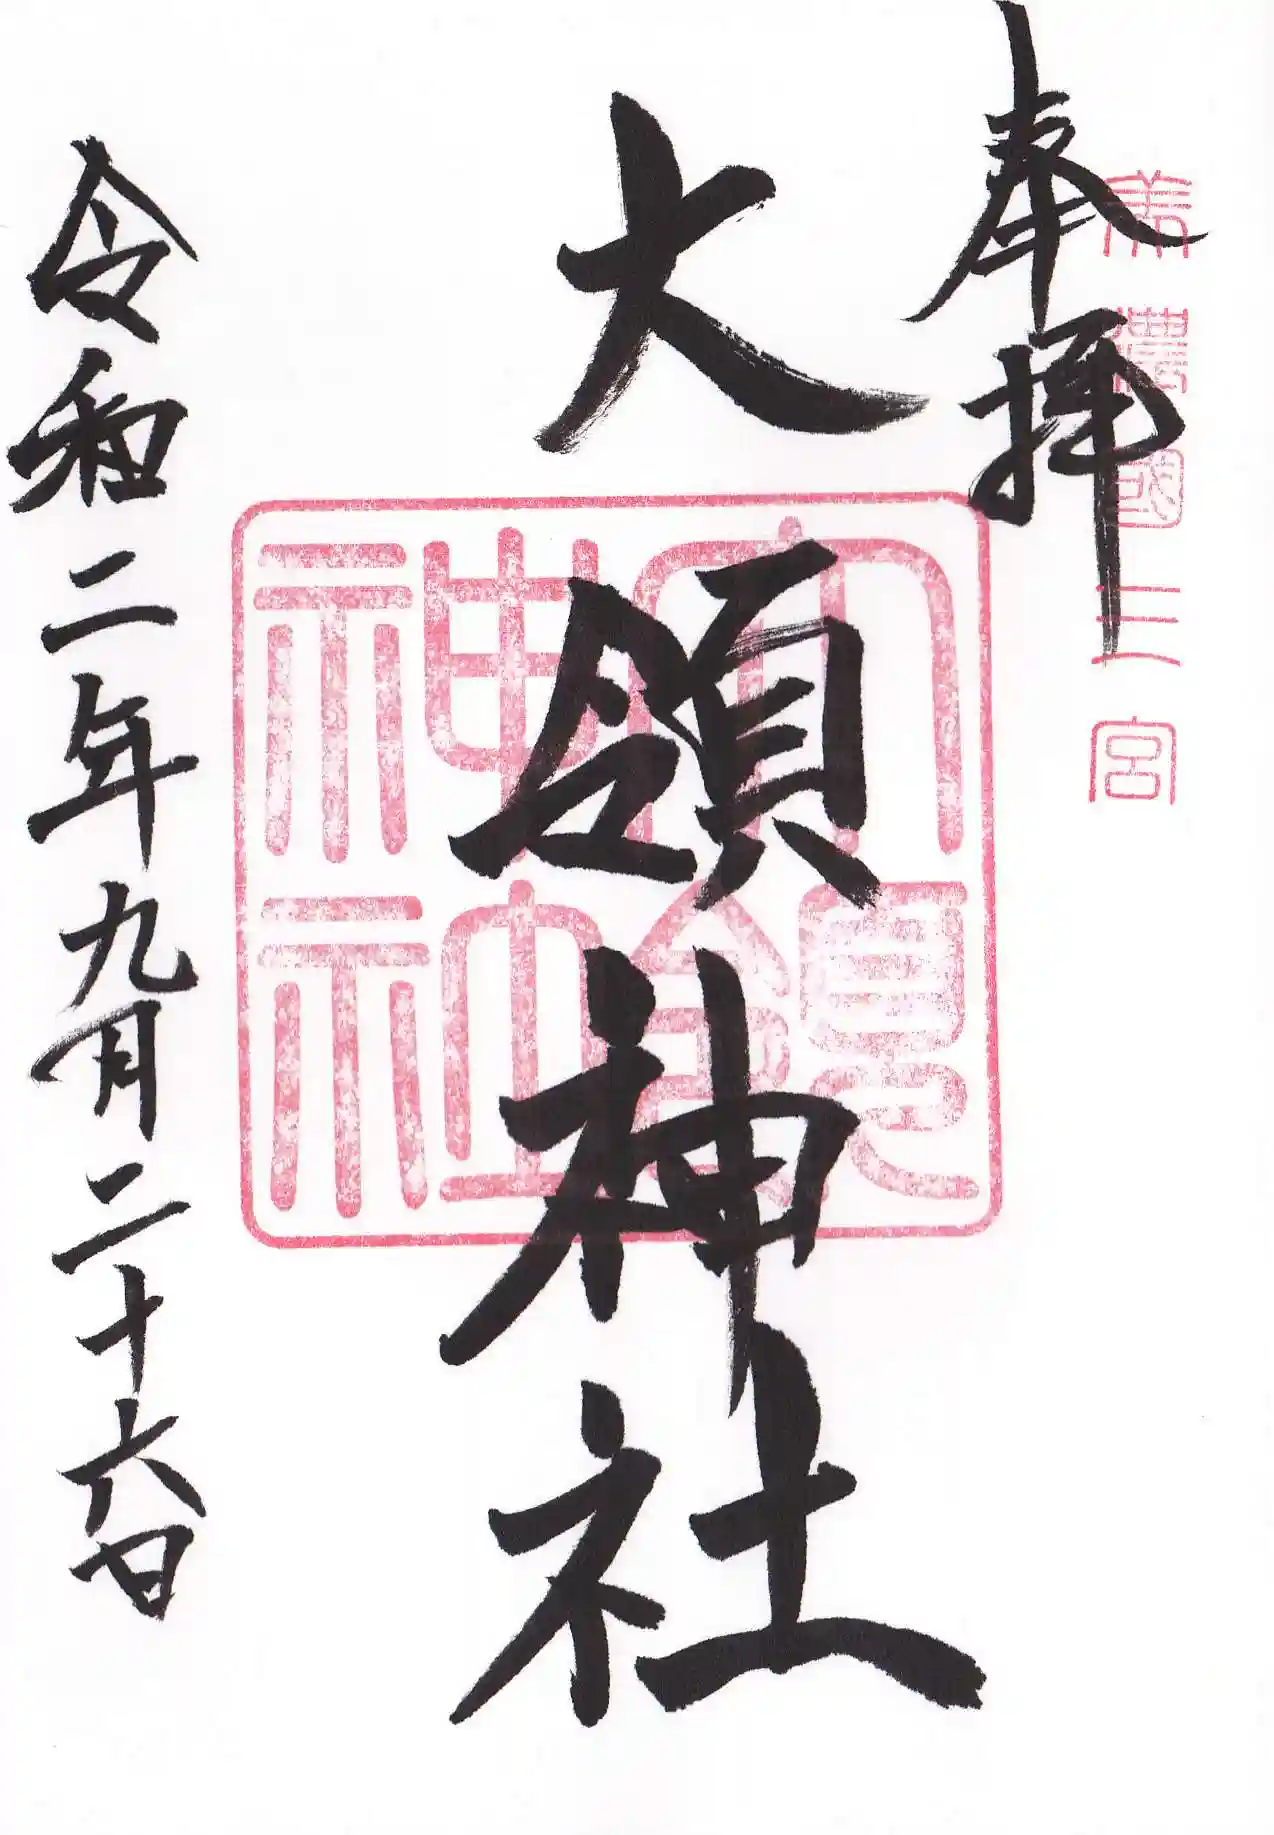 奉拝
美濃國二宮
大領神社
大領神社
令和二年九月二十六日